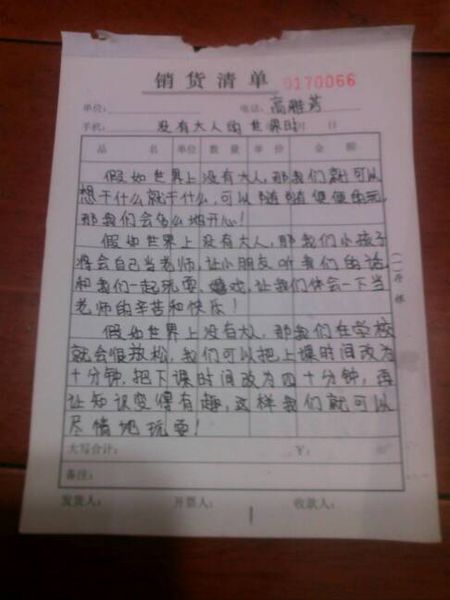 销货清单 0170066
单位： 电话：高雅芳
手机： 没有大人的世界时 日
品 名 单位 数量 单价 金 额
假如世界上没有大人，那我们就可以
想干什么就干什么，可以随随便便的玩，
那我们会多么地开心！
假如世界上没有大人，那我们小孩子
将会自己当老师，让小朋友听我们的话，
和我们一起玩耍、嬉戏，让我们体会一下当
老师的辛苦和快乐！
假如世界上没有大人，那我们在学校
就会很放松，我们可以把上课时间改为
十分钟，把下课时间改为四十分钟，再
让知识变得有趣，这样我们就可以
尽情地玩耍！
大写合计： ￥：
备注：
发货人： 开票人： 收款人：